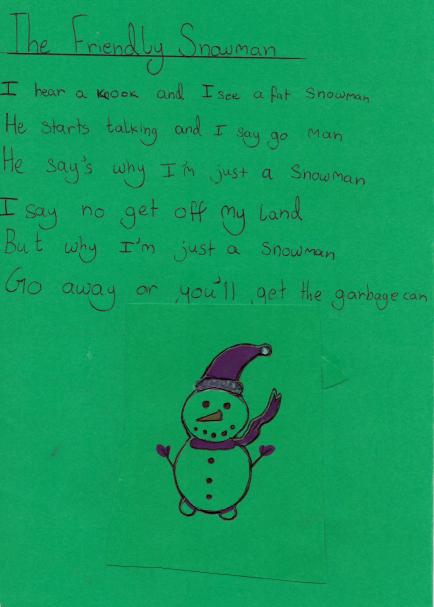 The Friendly Snowman
I hear a knock and I see a fat snowman
He starts talking and I say go man
He say's why I'm just a Snowman
I say no get off my land
But why I'm just a snowman
Go away or you'll get the garbage can